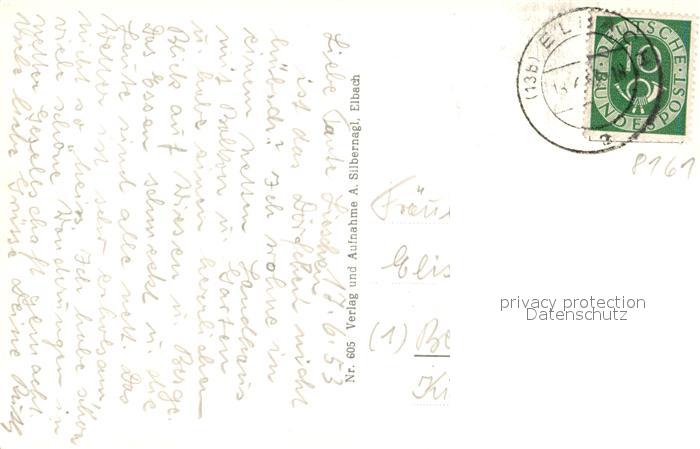 Liebe Tante Lieschen! 17.6.53
ist das Dörfchen nicht
hübsch? Ich wohne in
einem netten Landhaus
mit Balkon u. Garten
u. habe einen herrlichen
Blick auf Wiesen u. Berge.
Das Essen schmeckt u. die
Leute sind alle nett. Das
Wetter ist sehr erholsam
nicht so heiss. Ich habe schon
viele schöne Wanderungen in
netter Gesellschaft gemacht.
Viele liebe Grüsse Deine Ruth
Nr. 605 Verlag und Aufnahme A. Silbernagl, Elbach
Fräul
Elis
(1) Be
Ki
(13b) EL
a
DEUTSCHE BUNDESPOST
10
8161
privacy protection
Datenschutz